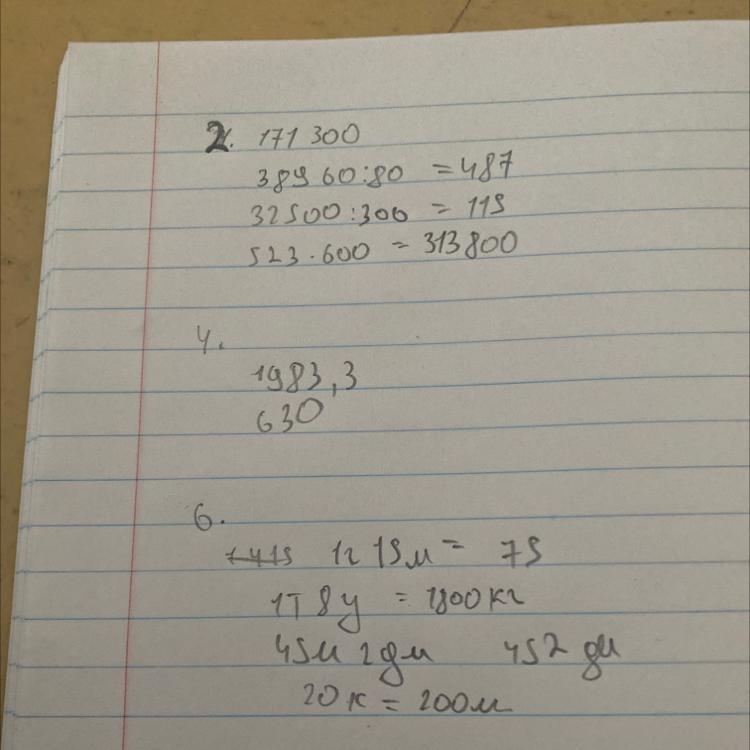 2. 171 300
38960:80 = 487
32500:300 = 115
523·600 = 313800
4.
1983,3
630
6.
1ч 15м = 75
1т 8ц = 1800кг
45м 2дм 452 дм
20к = 200м